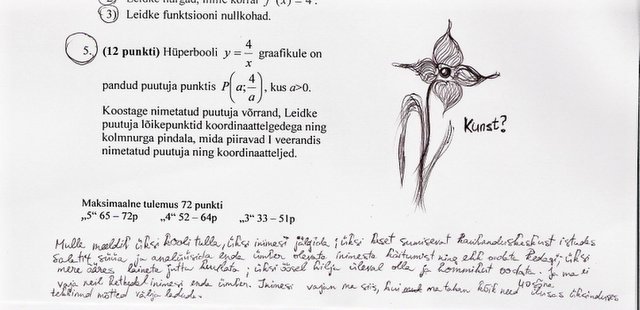 2) Leidke nurgad, mille korral f'(x) = 4.
3) Leidke funktsiooni nullkohad.
5. (12 punkti) Hüperbooli y = 4/x graafikule on
pandud puutuja punktis P(a; 4/a), kus a>0.
Koostage nimetatud puutuja võrrand, Leidke
puutuja lõikepunktid koordinaattelgedega ning
kolmnurga pindala, mida piiravad I veerandis
nimetatud puutuja ning koordinaatteljed.
Kunst?
Maksimaalne tulemus 72 punkti
„5“ 65 – 72p „4“ 52 – 64p „3“ 33 – 51p
Mulle meeldib üksi kooli tulla, üksi inimesi jälgida; üksi keset sumisevat kaubanduskeskust istudes
salatit süüa ja analüüsida enda ümber olevate inimeste käitumist ning ehk oodata kedagi; üksi
mere ääres laineta juttu; üksi öösel hilja üleval olla ja hommikut oodata. Ja ma ei
vaja neil hetkedel inimesi enda ümber. Inimesi vajan ma siis, kui ma tahan kõik need üksinduses
tekkinud mõtted välja laduda.